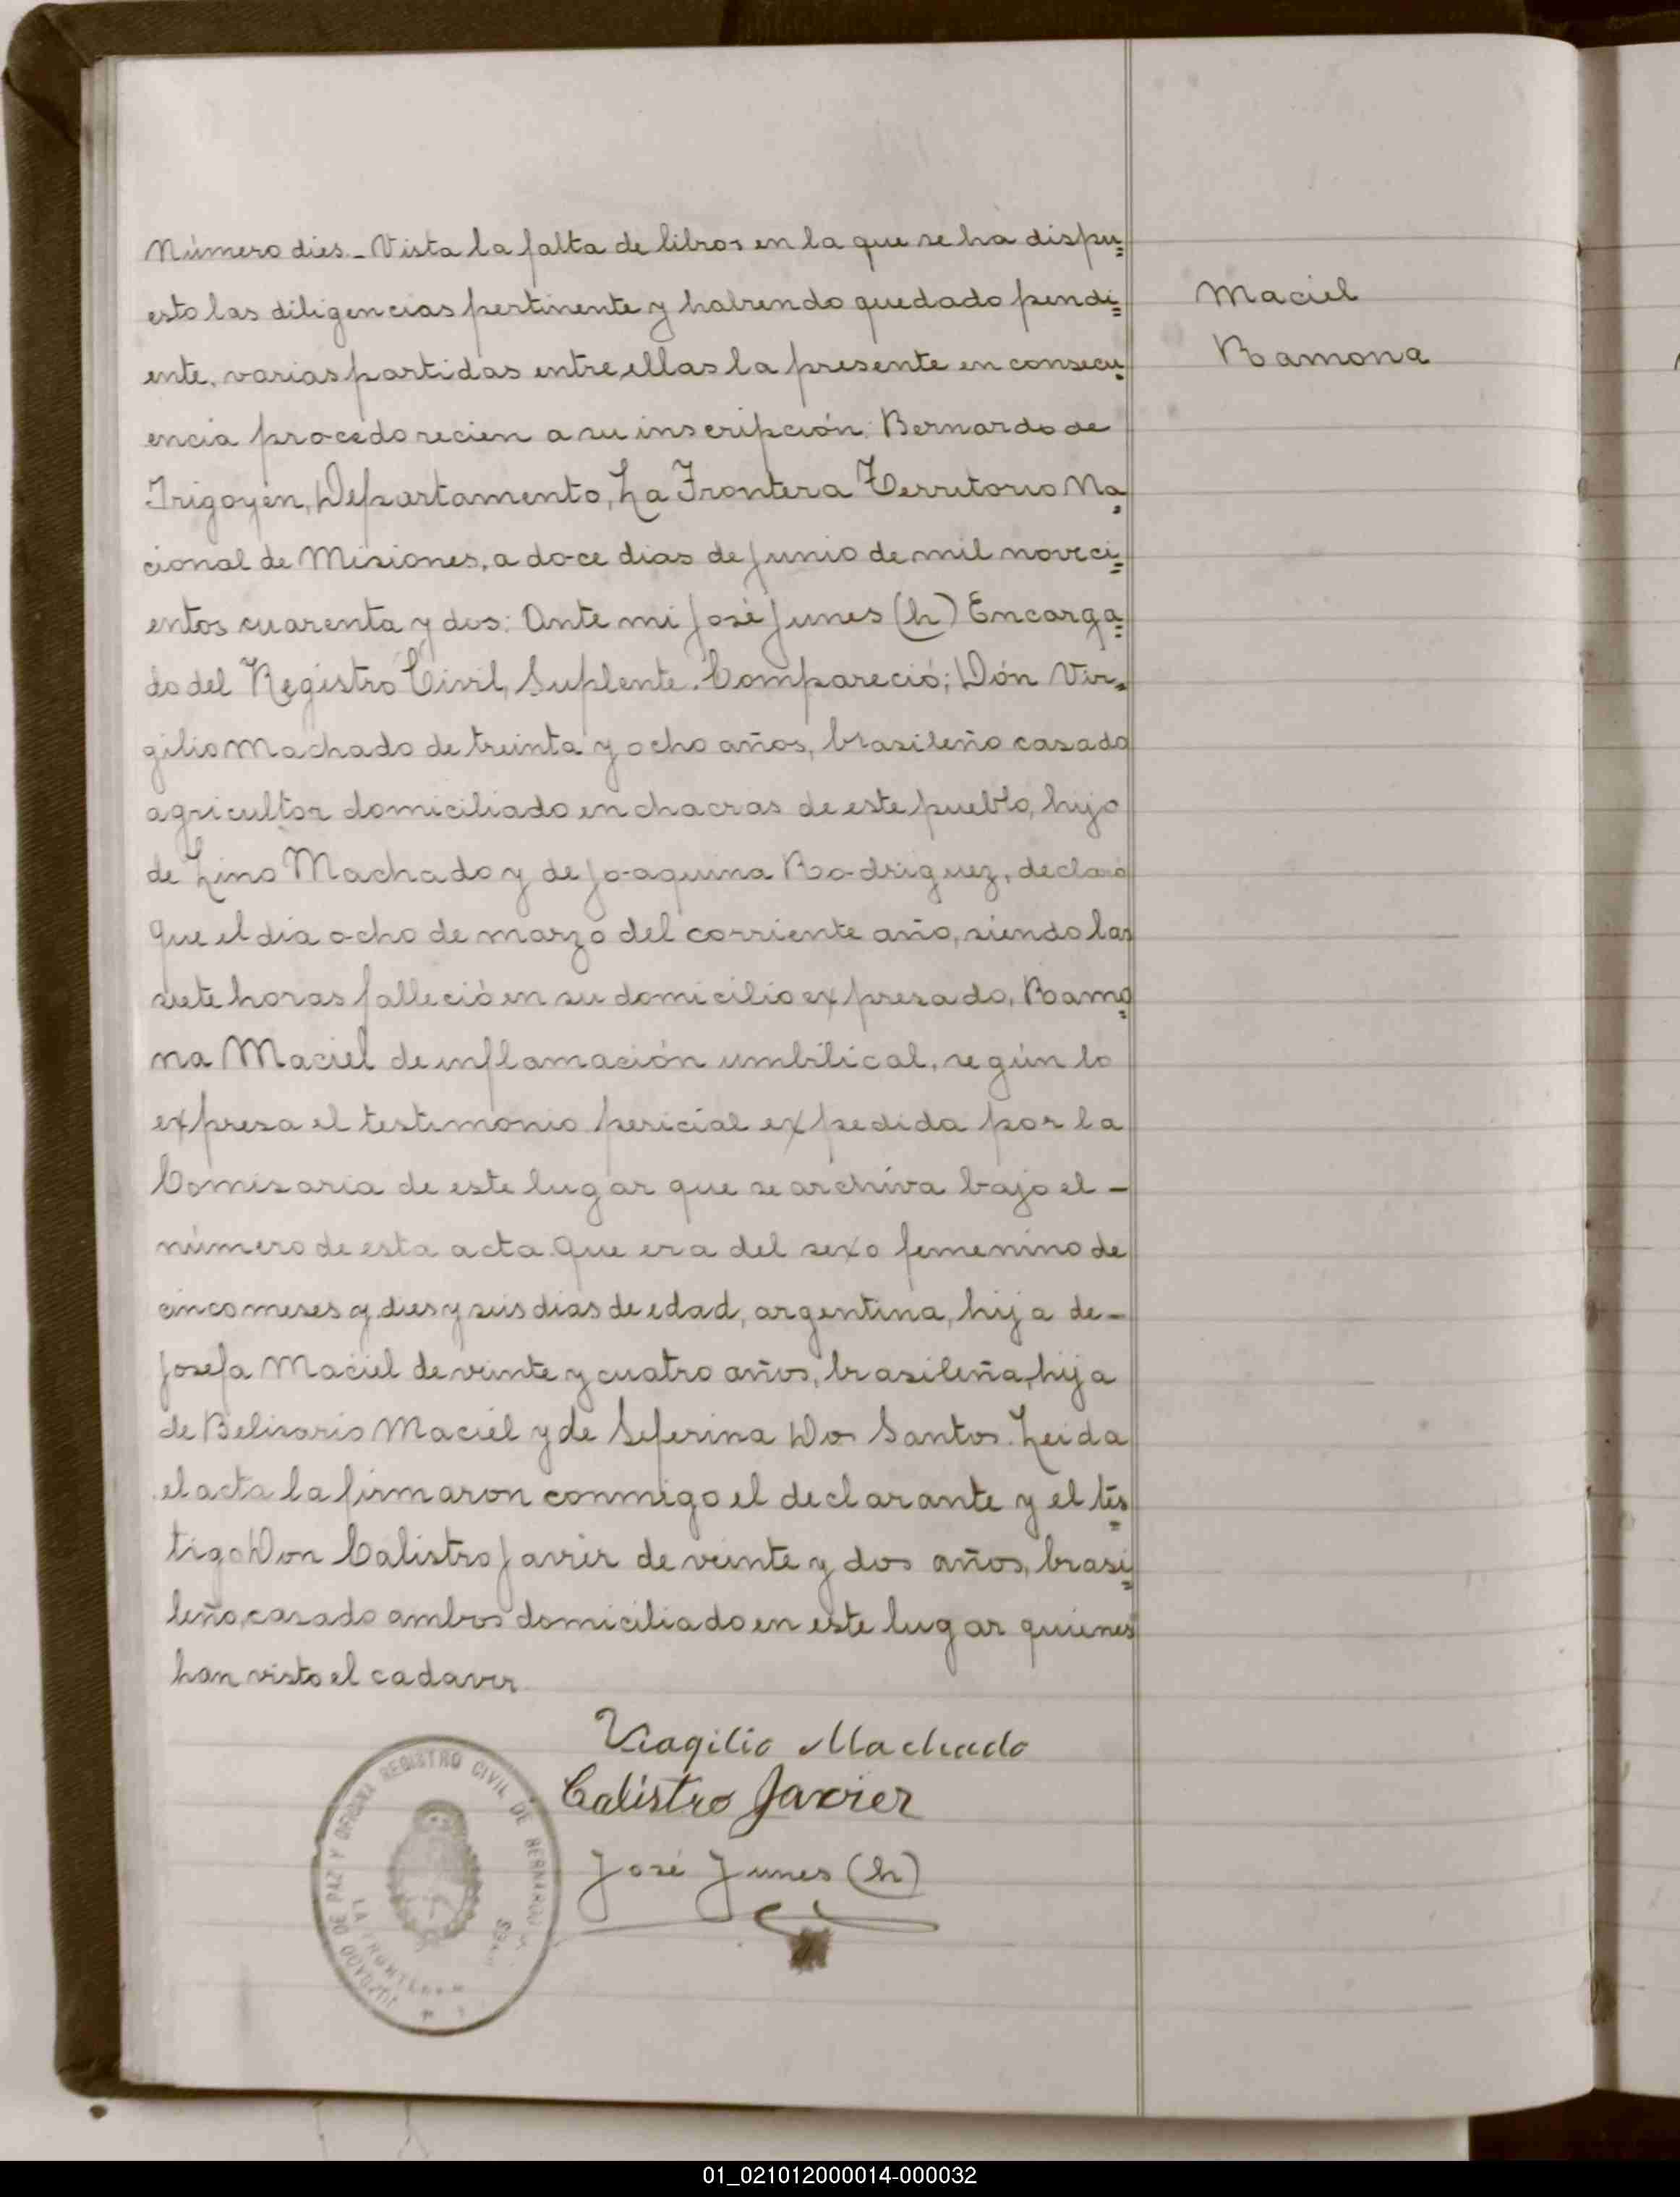 Número dies.- Vista la falta de libros en la que se ha dispu=
esto las diligencias pertinente y habiendo quedado pendi=
ente, varias partidas entre ellas la presente en consecu=
encia procedo recien a su inscripción: Bernardo de
Irigoyen, Departamento, La Frontera Territorio Na=
cional de Misiones, a doce dias de Junio de mil noveci=
entos cuarenta y dos: Ante mi José Junes (h) Encarga=
do del Registro Civil, Suplente. Compareció; Dón Vir=
gilio Machado de treinta y ocho años, brasileño casado
agricultor domiciliado en chacras de este pueblo, hijo
de Lino Machado y de Joaquina Rodriguez, declaró
que el dia ocho de marzo del corriente año, siendo las
siete horas falleció en su domicilio expresado, Ramo=
na Maciel de inflamación umbilical, según lo
expresa el testimonio pericial expedida por la
Comisaria de este lugar que se archiva bajo el -
número de esta acta. Que era del sexo femenino de
cinco meses y dies y seis dias de edad, argentina, hija de-
Josefa Maciel de veinte y cuatro años, brasileña, hija
de Belisario Maciel y de Seferina Dos Santos. Leida
el acta la firmaron conmigo el declarante y el tes=
tigo Don Calistro Javier de veinte y dos años, brasi=
leño, casado ambos domiciliado en este lugar quienes
han visto el cadaver.
Maciel
Ramona
Virgilio Machado
Calistro Javier
José Junes (h)
JUZGADO DE PAZ Y OFICINA REGISTRO CIVIL DE BERNARDO
LA FRONTERA
01_021012000014-000032